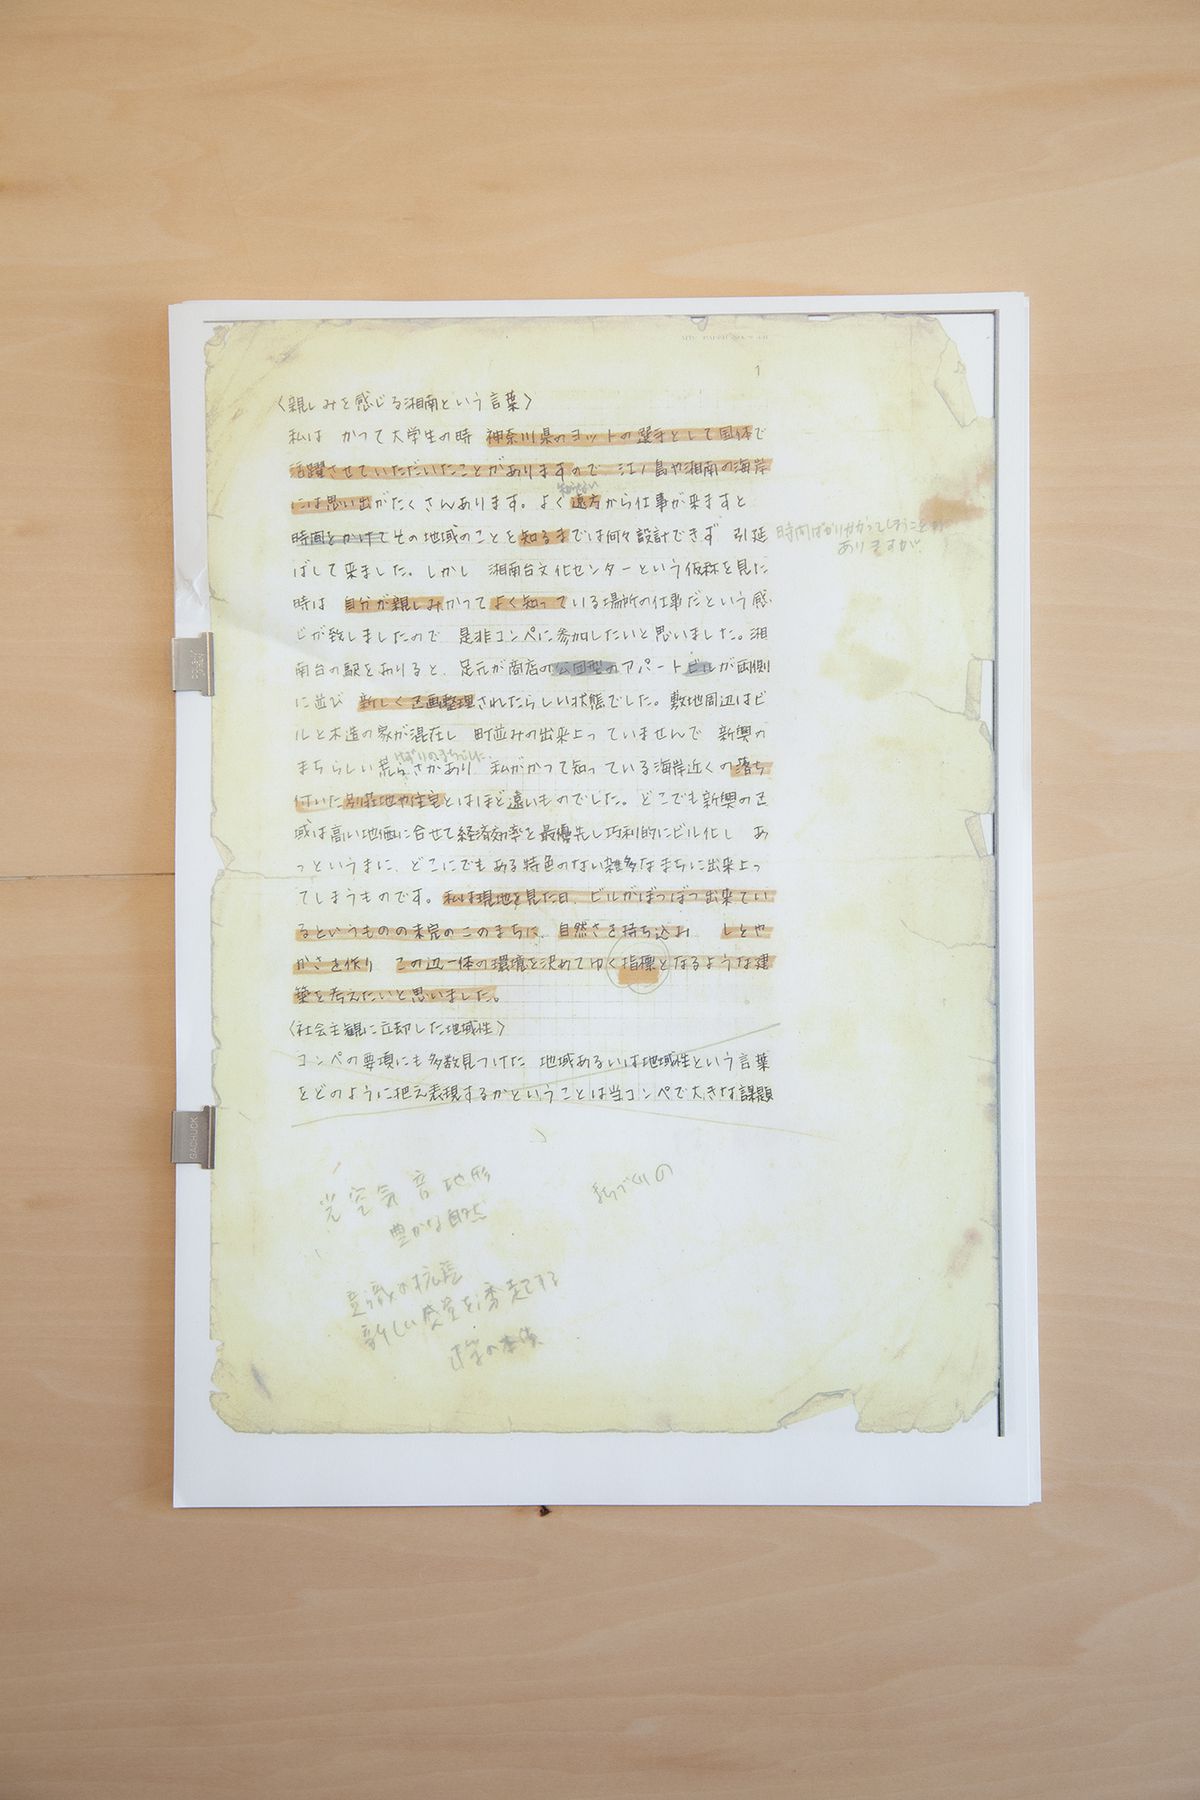 1
〈親しみを感じる湘南という言葉〉
私は かつて大学生の時 神奈川県のヨットの選手として国体で
活躍させていただいたことがありますので 江ノ島や湘南の海岸
には思い出がたくさんあります。よく遠方から仕事が来ますと
時間をかけてその地域のことを知るまでは何々設計できず 引延
時間ばかりかかってしまうことも
ありますが、
ばして来ました。しかし 湘南台文化センターという仮称を見た
時は 自分が親しみかつてよく知っている場所の仕事だという感
じが致しましたので 是非コンペに参加したいと思いました。湘
南台の駅をおりると、足元が商店の公団型のアパートビルが両側
に並び 新しく区画整理されたらしい状態でした。敷地周辺はビ
ルと木造の家が混在し 町並みの出来上っていませんで 新興の
まちらしい荒らさがあり 私がかつて知っている海岸近くの落ち
付いた別荘地や住宅とはほど遠いものでした。どこでも新興の区
域は高い地価に合せて経済効率を最優先し巧利的にビル化し あ
っというまに、どこにでもある特色のない雑多なまちに出来上っ
てしまうものです。私は現地を見た日、ビルがぼつぼつ出来てい
るというものの未完のこのまちに、自然さを持ち込み しとや
かさを作り この辺一体の環境を決めてゆく指標となるような建
築を考えたいと思いました。
〈社会主観に立却した地域性〉
コンペの要項にも多数見つけた 地域あるいは地域性という言葉
をどのように把え表現するかということは当コンペで大きな課題
光 空気 音 地形
豊かな自然
まちづくりの
意識の拡差
新しい感覚を誘起する
の本質